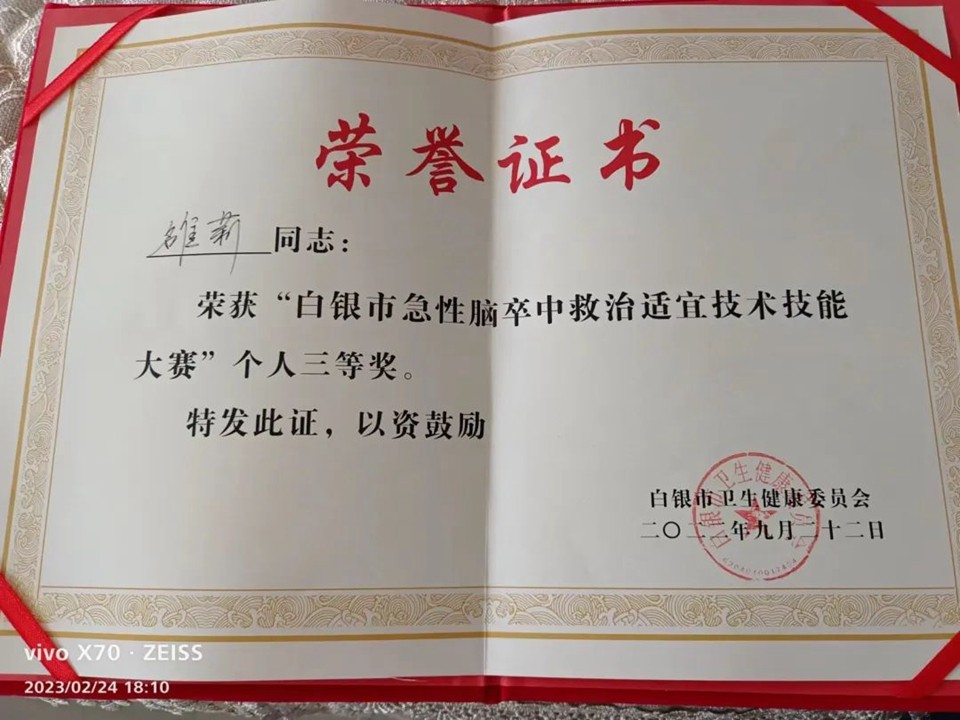 荣誉证书
雒莉同志：
荣获“白银市急性脑卒中救治适宜技术技能
大赛”个人三等奖。
特发此证，以资鼓励
白银市卫生健康委员会
二〇二二年九月二十二日
白银市卫生健康委员会
vivo X70 · ZEISS
2023/02/24 18:10